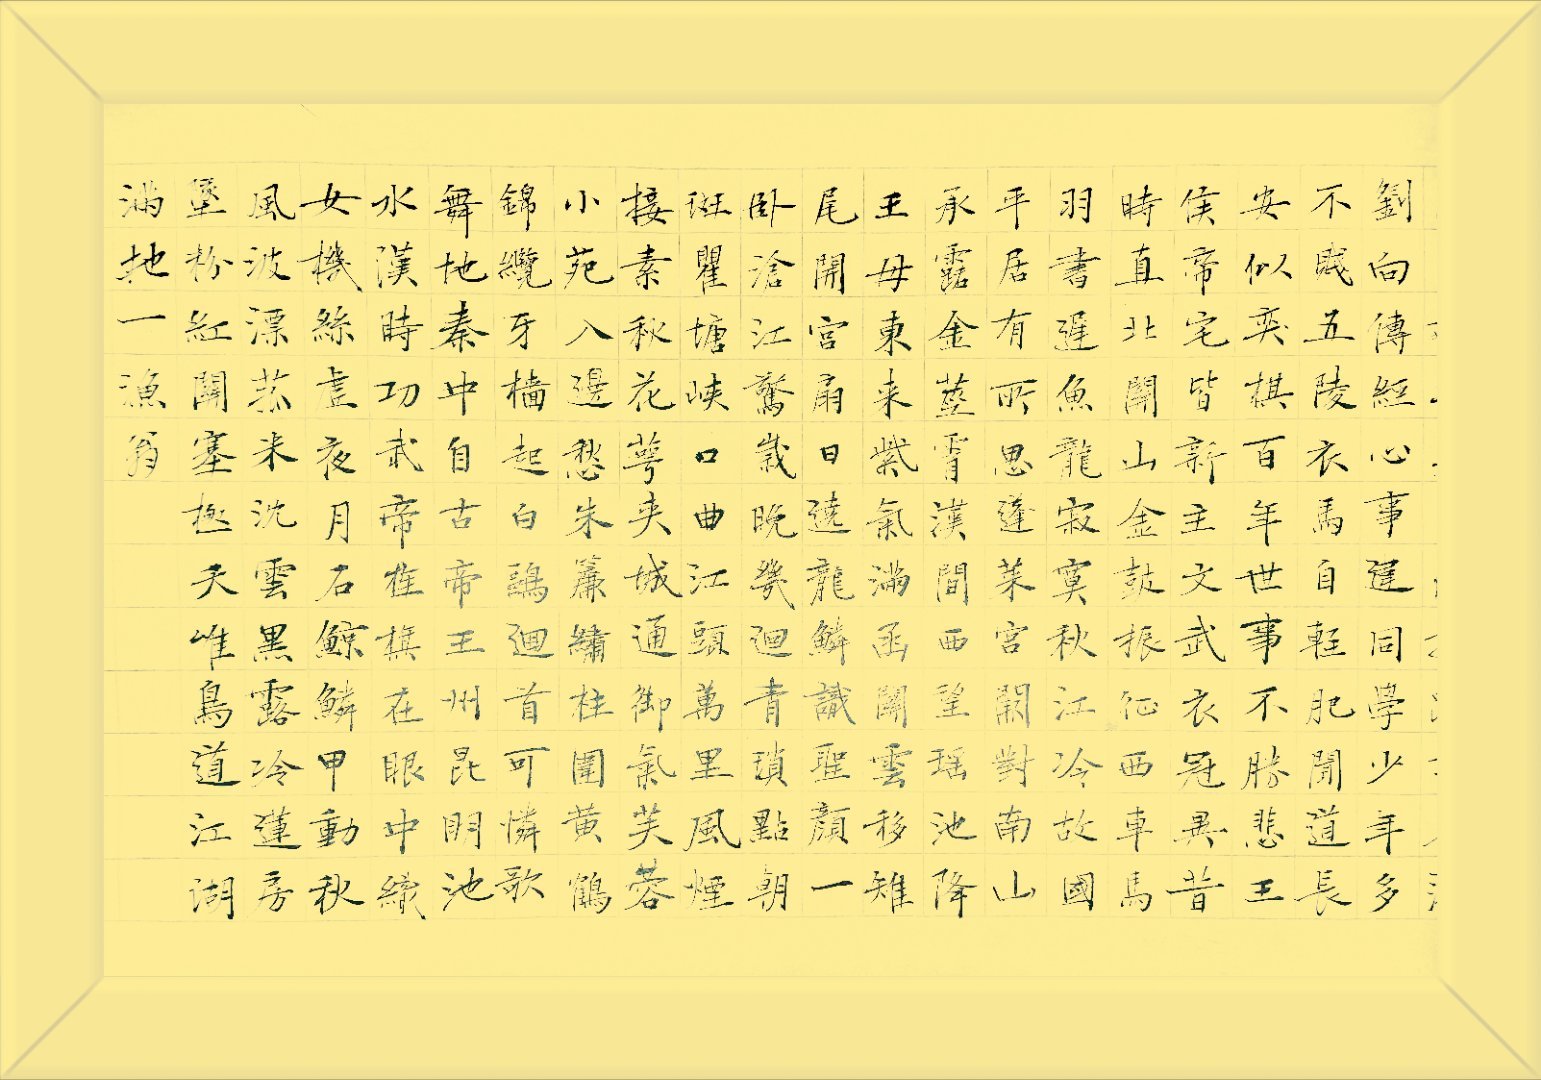 劉向傳經心事違同學少年多
不賤五陵衣馬自輕肥聞道長
安似奕棋百年世事不勝悲王
侯帝宅皆新主文武衣冠異昔
時直北關山金鼓振征西車馬
羽書遲魚龍寂寞秋江冷故國
平居有所思蓬萊宮闕對南山
承露金莖霄漢間西望瑤池降
王母東来紫氣滿函關雲移雉
尾開宮扇日遶龍鱗識聖顏一
卧滄江驚歲晚幾迴青瑣點朝
班瞿塘峽口曲江頭萬里風煙
接素秋花萼夾城通御氣芙蓉
小苑入邊愁朱簾繡柱圍黄鶴
錦纜牙檣起白鷗迴首可憐歌
舞地秦中自古帝王州昆明池
水漢時功武帝旌旗在眼中織
女機絲虛夜月石鯨鱗甲動秋
風波漂菰米沈雲黑露冷蓮房
墜粉紅關塞極天唯鳥道江湖
滿地一漁翁